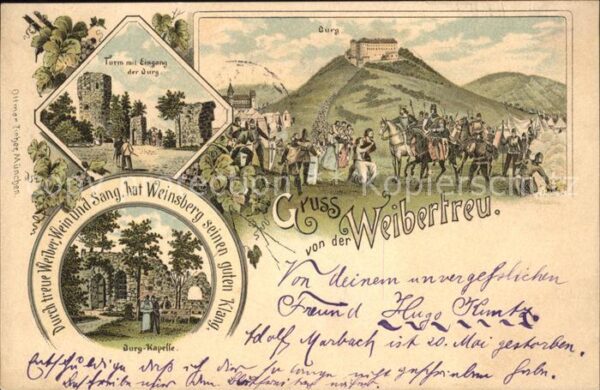 Burg
Turm mit Eingang
der Burg.
Ottmar Zieher, München.
Gruss
von der Weibertreu.
Durch treue Weiber, Wein und Sang, hat Weinsberg seinen guten Klang.
Burg-Kapelle.
Von deinem unvergesslichen
Freund Hugo Kuntz.
Adolf Marbach ist 20. Mai gestorben.
Entschuldige daß ich dir so lange nicht geschrieben habe.